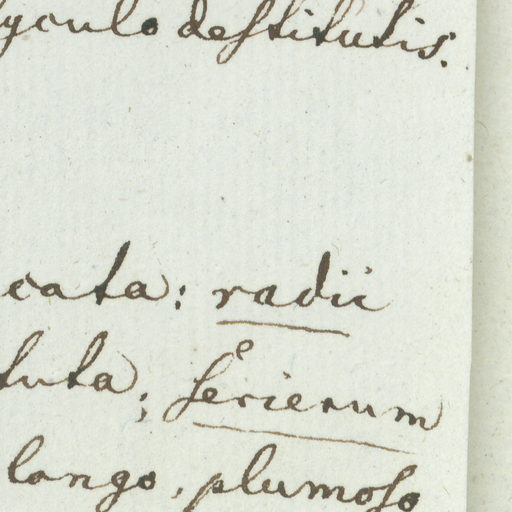 yculo destitutis.
cata: radii
tuta; serierum
longo, plumoso